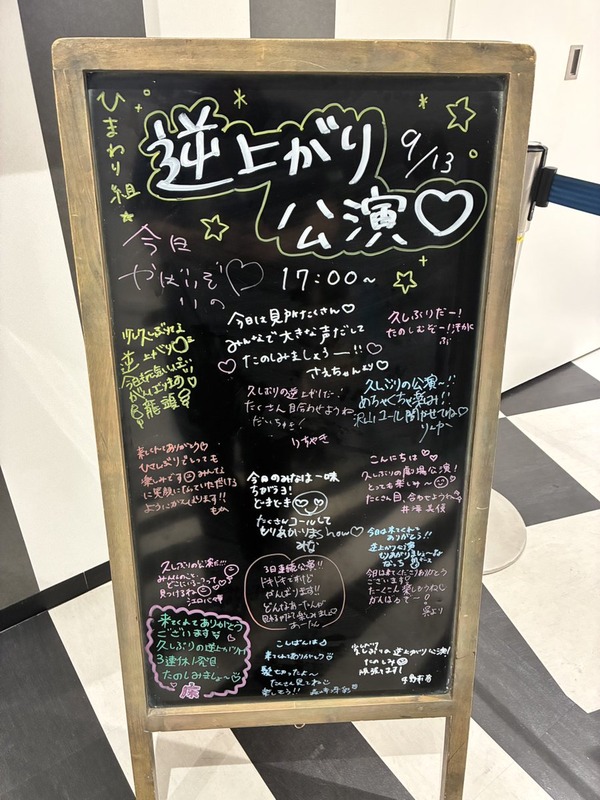 ひまわり組
逆上がり
公演♡
9/13
17:00~
今日
やばいぞ♡
りの
今日は見所たくさん♡
みんなで大きな声だして
たのしみましょうー!!♡
さえちゃんより
久しぶりだー!
たのしむぞー!!
逆上がり
龍頭
久しぶりの逆上がりだー!
たくさん目合わせようね
だいちゅき!
りちゃき
久しぶりの公演~!!
めちゃくちゃ楽み!!
沢山コール聞かせてね♡
来てくれてありがとう♡
ひさしぶりでとっても
楽しみです みんな
に笑顔になっていただける
ようにがんばります!!
もか
今日のみなはー味
ちがうヨ!
どきどき
たくさんコールして
もりあがりまshow♡
みな
こんにちは♡
久しぶりの劇場公演!
とっても楽しゅ〜
たくさん目、合わせようね
井澤美優
今日は来てくれて
ありがとう!!
逆上がり公演
もりあがりましょーな
なっち
今日は来てくれてありがとう
ございます
たーくさん楽しもうねい
がんばるぞー!
呉より
久しぶりの公演
みんなのこと、
どこにいるーってて
見つけるね
3日連続公演!!
ドキドキですけど
がんばります!!
どんなあーたんが
見れるか 楽しみましょ
あーたん
来てくれてありがとう
ございます
久しぶりの逆上がり!
3連休1発目
たのしみましょ〜
康
こんばんは
来てくれてありがとう
髪切ったよ〜
たくさん見てね
楽しもう!!
久しぶりの逆上がり公演!
たのしみ
頑張ります!